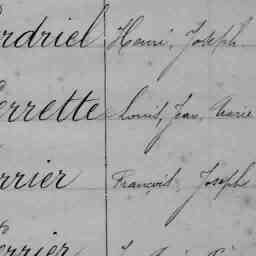 rdriel Henri, Joseph
errette Louis, Jean, Marie
rrier François, Joseph
errier